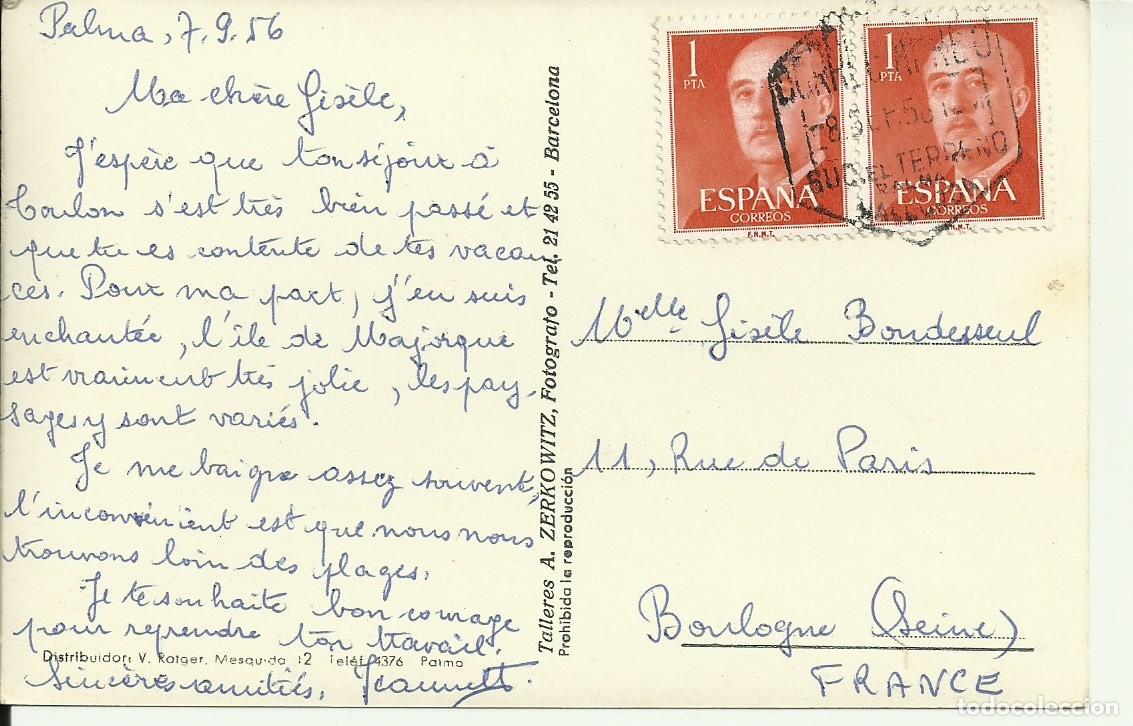 Palma, 7.9.56
Ma chère Gisèle,
J'espère que ton séjour à
Toulon s'est très bien passé et
que tu es contente de tes vacan
ces. Pour ma part, j'en suis
enchantée, l'île de Majorque
est vraiment très jolie, les pay-
sages y sont variés.
Je me baigne assez souvent,
l'inconvénient est que nous nous
trouvons loin des plages.
Je te souhaite bon courage
pour reprendre ton travail.
Distribuidor: V. Rotger, Mesquida 12 Teléf. 4376 Palma
Sincères amitiés. Jeannette
Talleres A. ZERKOWITZ, Fotografo - Tel. 21 42 55 - Barcelona
Prohibida la reproducción
1 PTA
ESPAÑA
CORREOS
F.N.M.T.
1 PTA
ESPAÑA
CORREOS
F.N.M.T.
SUC. EL TERRENO
Melle Gisèle Bondesseul
11, Rue de Paris
Boulogne (Seine)
FRANCE
todocoleccion